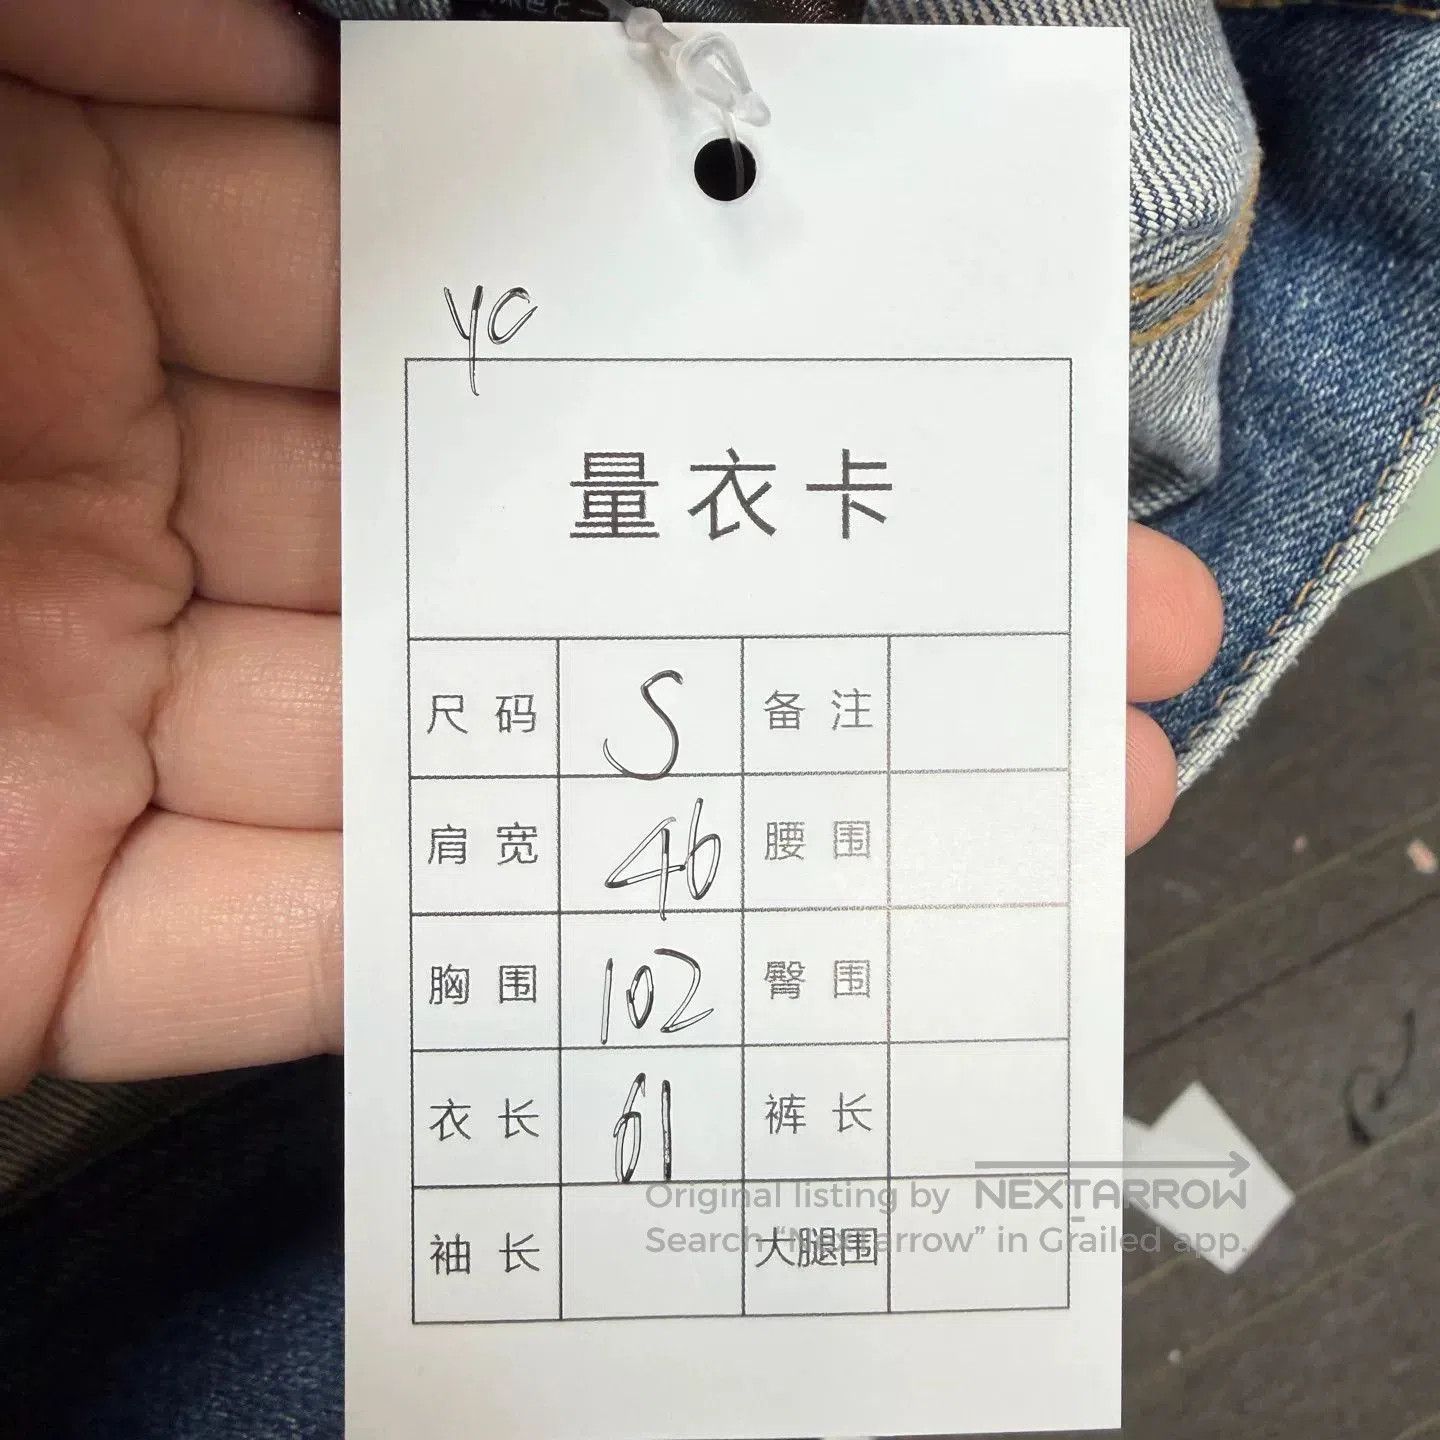 yc
量衣卡
尺码 S 备注
肩宽 46 腰围
胸围 102 臀围
衣长 61 裤长
袖长 大腿围
Original listing by NEXTARROW
Search "Nextarrow" in Grailed app.